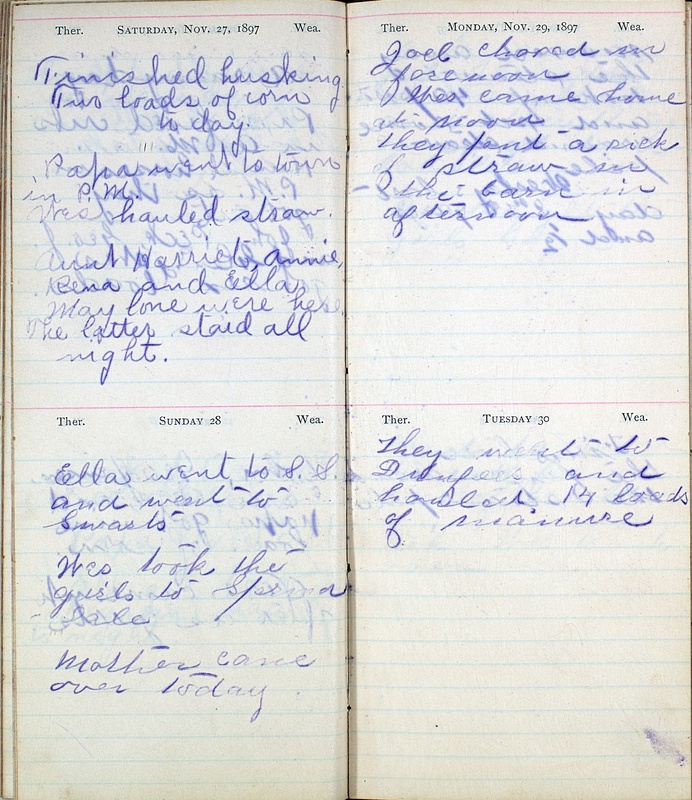 Ther. SATURDAY, NOV. 27, 1897 Wea.
Finished husking
Two loads of corn
to day.
Papa went to town
in P.M.
Wes hauled straw.
Aunt Harriet, Annie,
Rena and Ella
May lone were here.
The latter staid all
night.
Ther. SUNDAY 28 Wea.
Ella went to S. S.
and went to
Swasts
Wes took the
girls to Spring
- dale
Mother came
over today
Ther. MONDAY, NOV. 29, 1897 Wea.
Joel chored in
forenoon
Wes came home
at noon
they put a rick
of straw in
the barn in
afternoon
Ther. TUESDAY 30 Wea.
They went to
and
hauled 14 loads
of manure